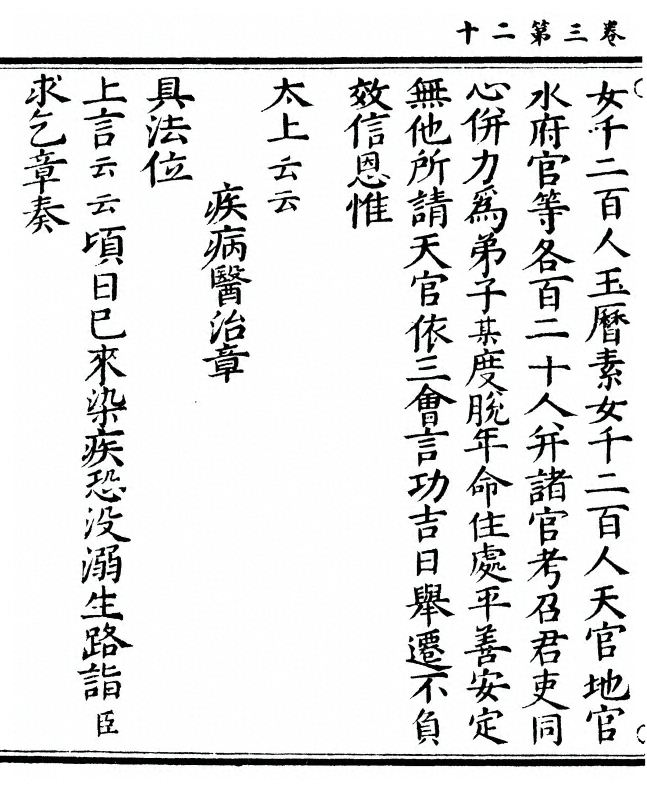 十二第三卷
女千二百人玉曆素女千二百人天官地官
水府官等各百二十人并諸官考召君吏同
心併力爲弟子某度脫年命住處平善安定
無他所請天官依三會言功吉日舉遷不負
效信恩惟
太上云云
疾病醫治章
具法位
上言云云頃日已來染疾恐没溺生路詣臣
求乞章奏